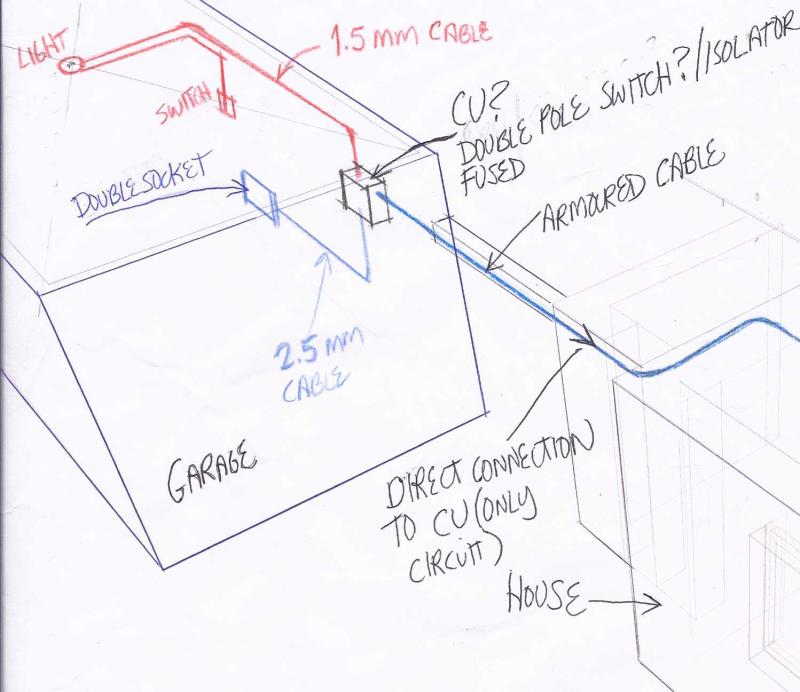 LIGHT
1.5 MM CABLE
SWITCH
CU?
DOUBLE POLE SWITCH?/ISOLATOR
FUSED
DOUBLE SOCKET
ARMOURED CABLE
2.5 MM
CABLE
GARAGE
DIRECT CONNECTION
TO CU (ONLY
CIRCUIT)
HOUSE